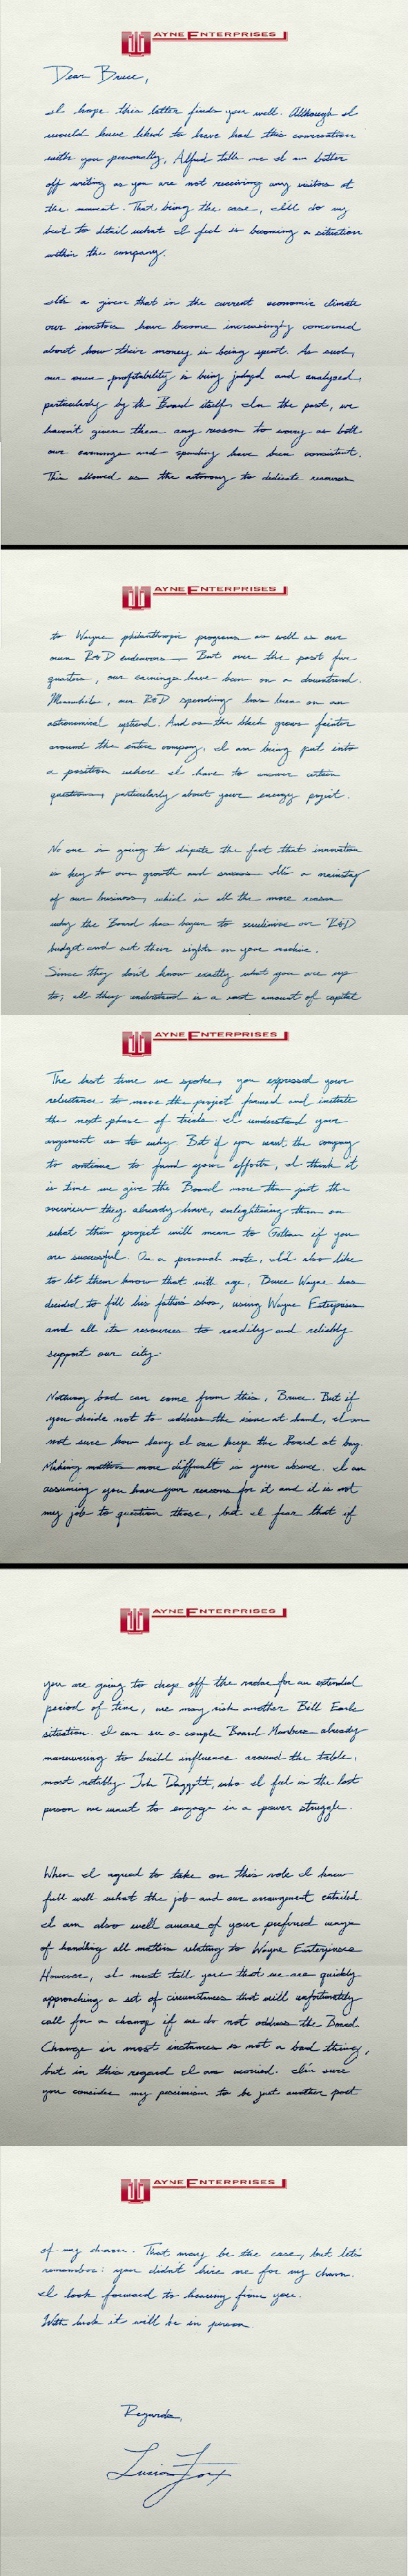 WAYNE ENTERPRISES
Dear Bruce,
I hope this letter finds you well. Although I
would have liked to have had this conversation
with you personally, Alfred tells me I am better
off writing as you are not receiving any visitors at
the moment. That being the case, I'll do my
best to detail what I feel is becoming a situation
within the company.
It's a given that in the current economic climate
our investors have become increasingly concerned
about how their money is being spent. As such,
our own profitability is being judged and analyzed,
particularly by the Board itself. In the past, we
haven't given them any reason to worry as both
our earnings and spending have been consistent.
This allowed us the autonomy to dedicate resources
WAYNE ENTERPRISES
to Wayne philanthropic programs as well as our
own R&D endeavors. But over the past five
quarters, our earnings have been on a downtrend.
Meanwhile, our R&D spending has been on an
astronomical uptrend. And as the black grows fainter
around the entire company, I am being put into
a position where I have to answer certain
questions, particularly about your energy project.
No one is going to dispute the fact that innovation
is key to our growth and success. It's a mainstay
of our business, which is all the more reason
why the Board has begun to scrutinize our R&D
budget and set their sights on your machine.
Since they don't know exactly what you are up
to; all they understand is a vast amount of capital
WAYNE ENTERPRISES
The last time we spoke, you expressed your
reluctance to move the project forward and initiate
the next phase of trials. I understand your
argument as to why. But if you want the company
to continue to fund your efforts, I think it
is time we give the Board more than just the
overview they already have, enlightening them on
what this project will mean to Gotham if you
are successful. On a personal note, I'd also like
to let them know that with age, Bruce Wayne has
decided to fill his father's shoes, using Wayne Enterprises
and all its resources to readily and reliably
support our city.
Nothing bad can come from this, Bruce. But if
you decide not to address the issue at hand, I am
not sure how long I can keep the Board at bay.
Making matters more difficult is your absence. I am
assuming you have your reasons for it and it is not
my job to question those, but I fear that if
WAYNE ENTERPRISES
you are going to drop off the radar for an extended
period of time, we may risk another Bill Earle
situation. I can see a couple Board Members already
maneuvering to build influence around the table,
most notably John Daggett, who I feel is the last
person we want to engage in a power struggle.
When I agreed to take on this role I knew
full well what the job and our arrangement entailed
I am also well aware of your preferred ways
of handling all matters relating to Wayne Enterprises
However, I must tell you that we are quickly
approaching a set of circumstances that will unfortunately
call for a change if we do not address the Board.
Change in most instances is not a bad thing,
but in this regard I am worried. I'm sure
you consider my pessimism to be just another part
WAYNE ENTERPRISES
of my charm. That may be the case, but let's
remember: you didn't hire me for my charm.
I look forward to hearing from you.
With luck it will be in person.
Regards,
Lucius Fox